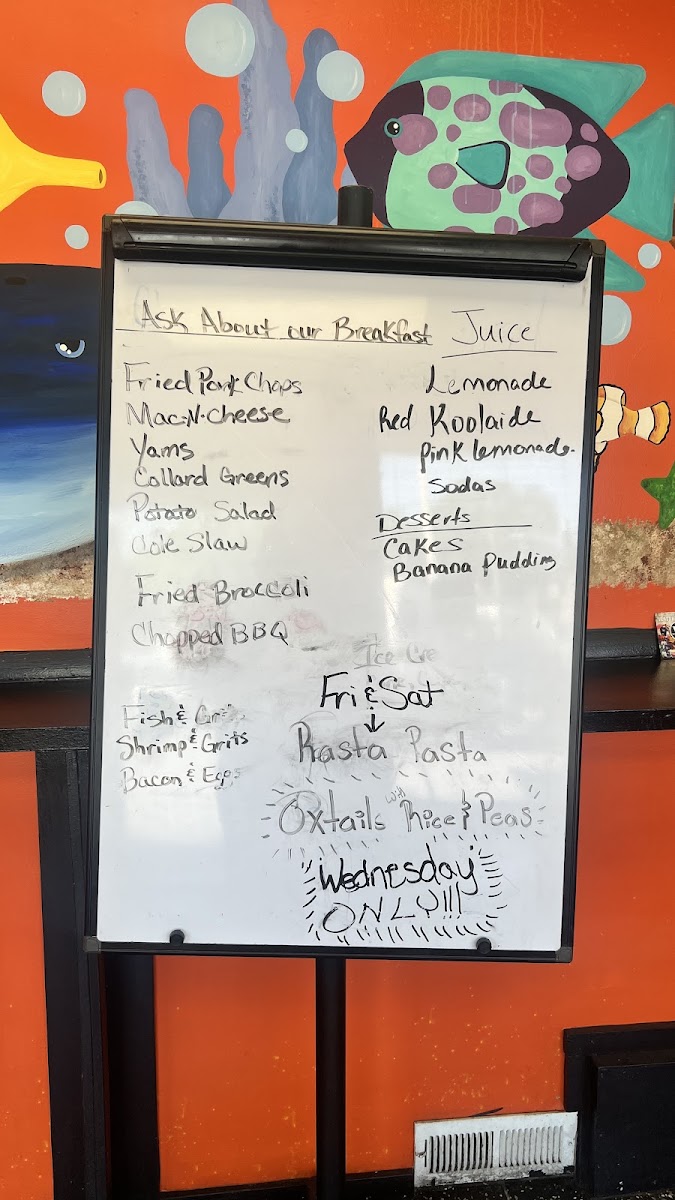 Ask About our Breakfast
Fried Pork Chops
Mac-N-Cheese
Yams
Collard Greens
Potato Salad
Cole Slaw
Fried Broccoli
Chopped BBQ
Fish &
Shrimp & Grits
Bacon & Eggs
Juice
Lemonade
Red Koolaide
Pink lemonade.
Sodas
Desserts
Cakes
Banana Pudding
Ice Cre
Fri & Sat
Rasta Pasta
Oxtails with Rice & Peas
Wednesday
ONLY!!!